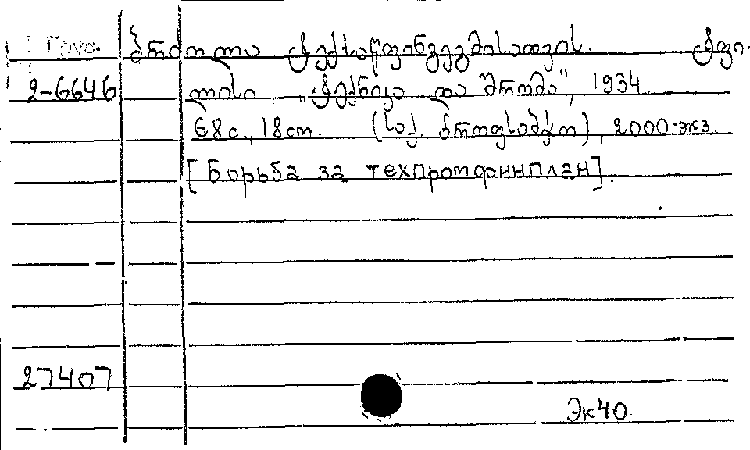 ბრძოლა ტექსაფინგეგმისათვის. ტფი-
2-6646 ლისი „ტექნიკა და შრომა“, 1934
68с, 18см. (საქ. პროფსაბჭო), 2000 экз.
[Борьба за техпромфинплан].
27407
Эк40